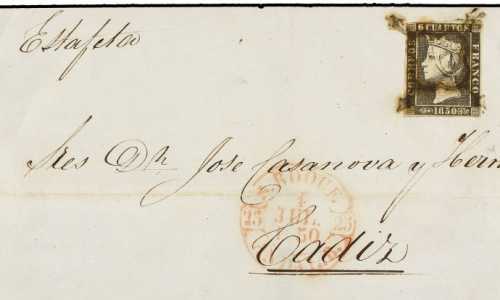 Estafeta
6 CUARTOS
CORREOS
FRANCO
1850
Sres Dn. Jose Casanova y Hern
S. ROQUE
1
3 JUL
50
25 25
Cadiz